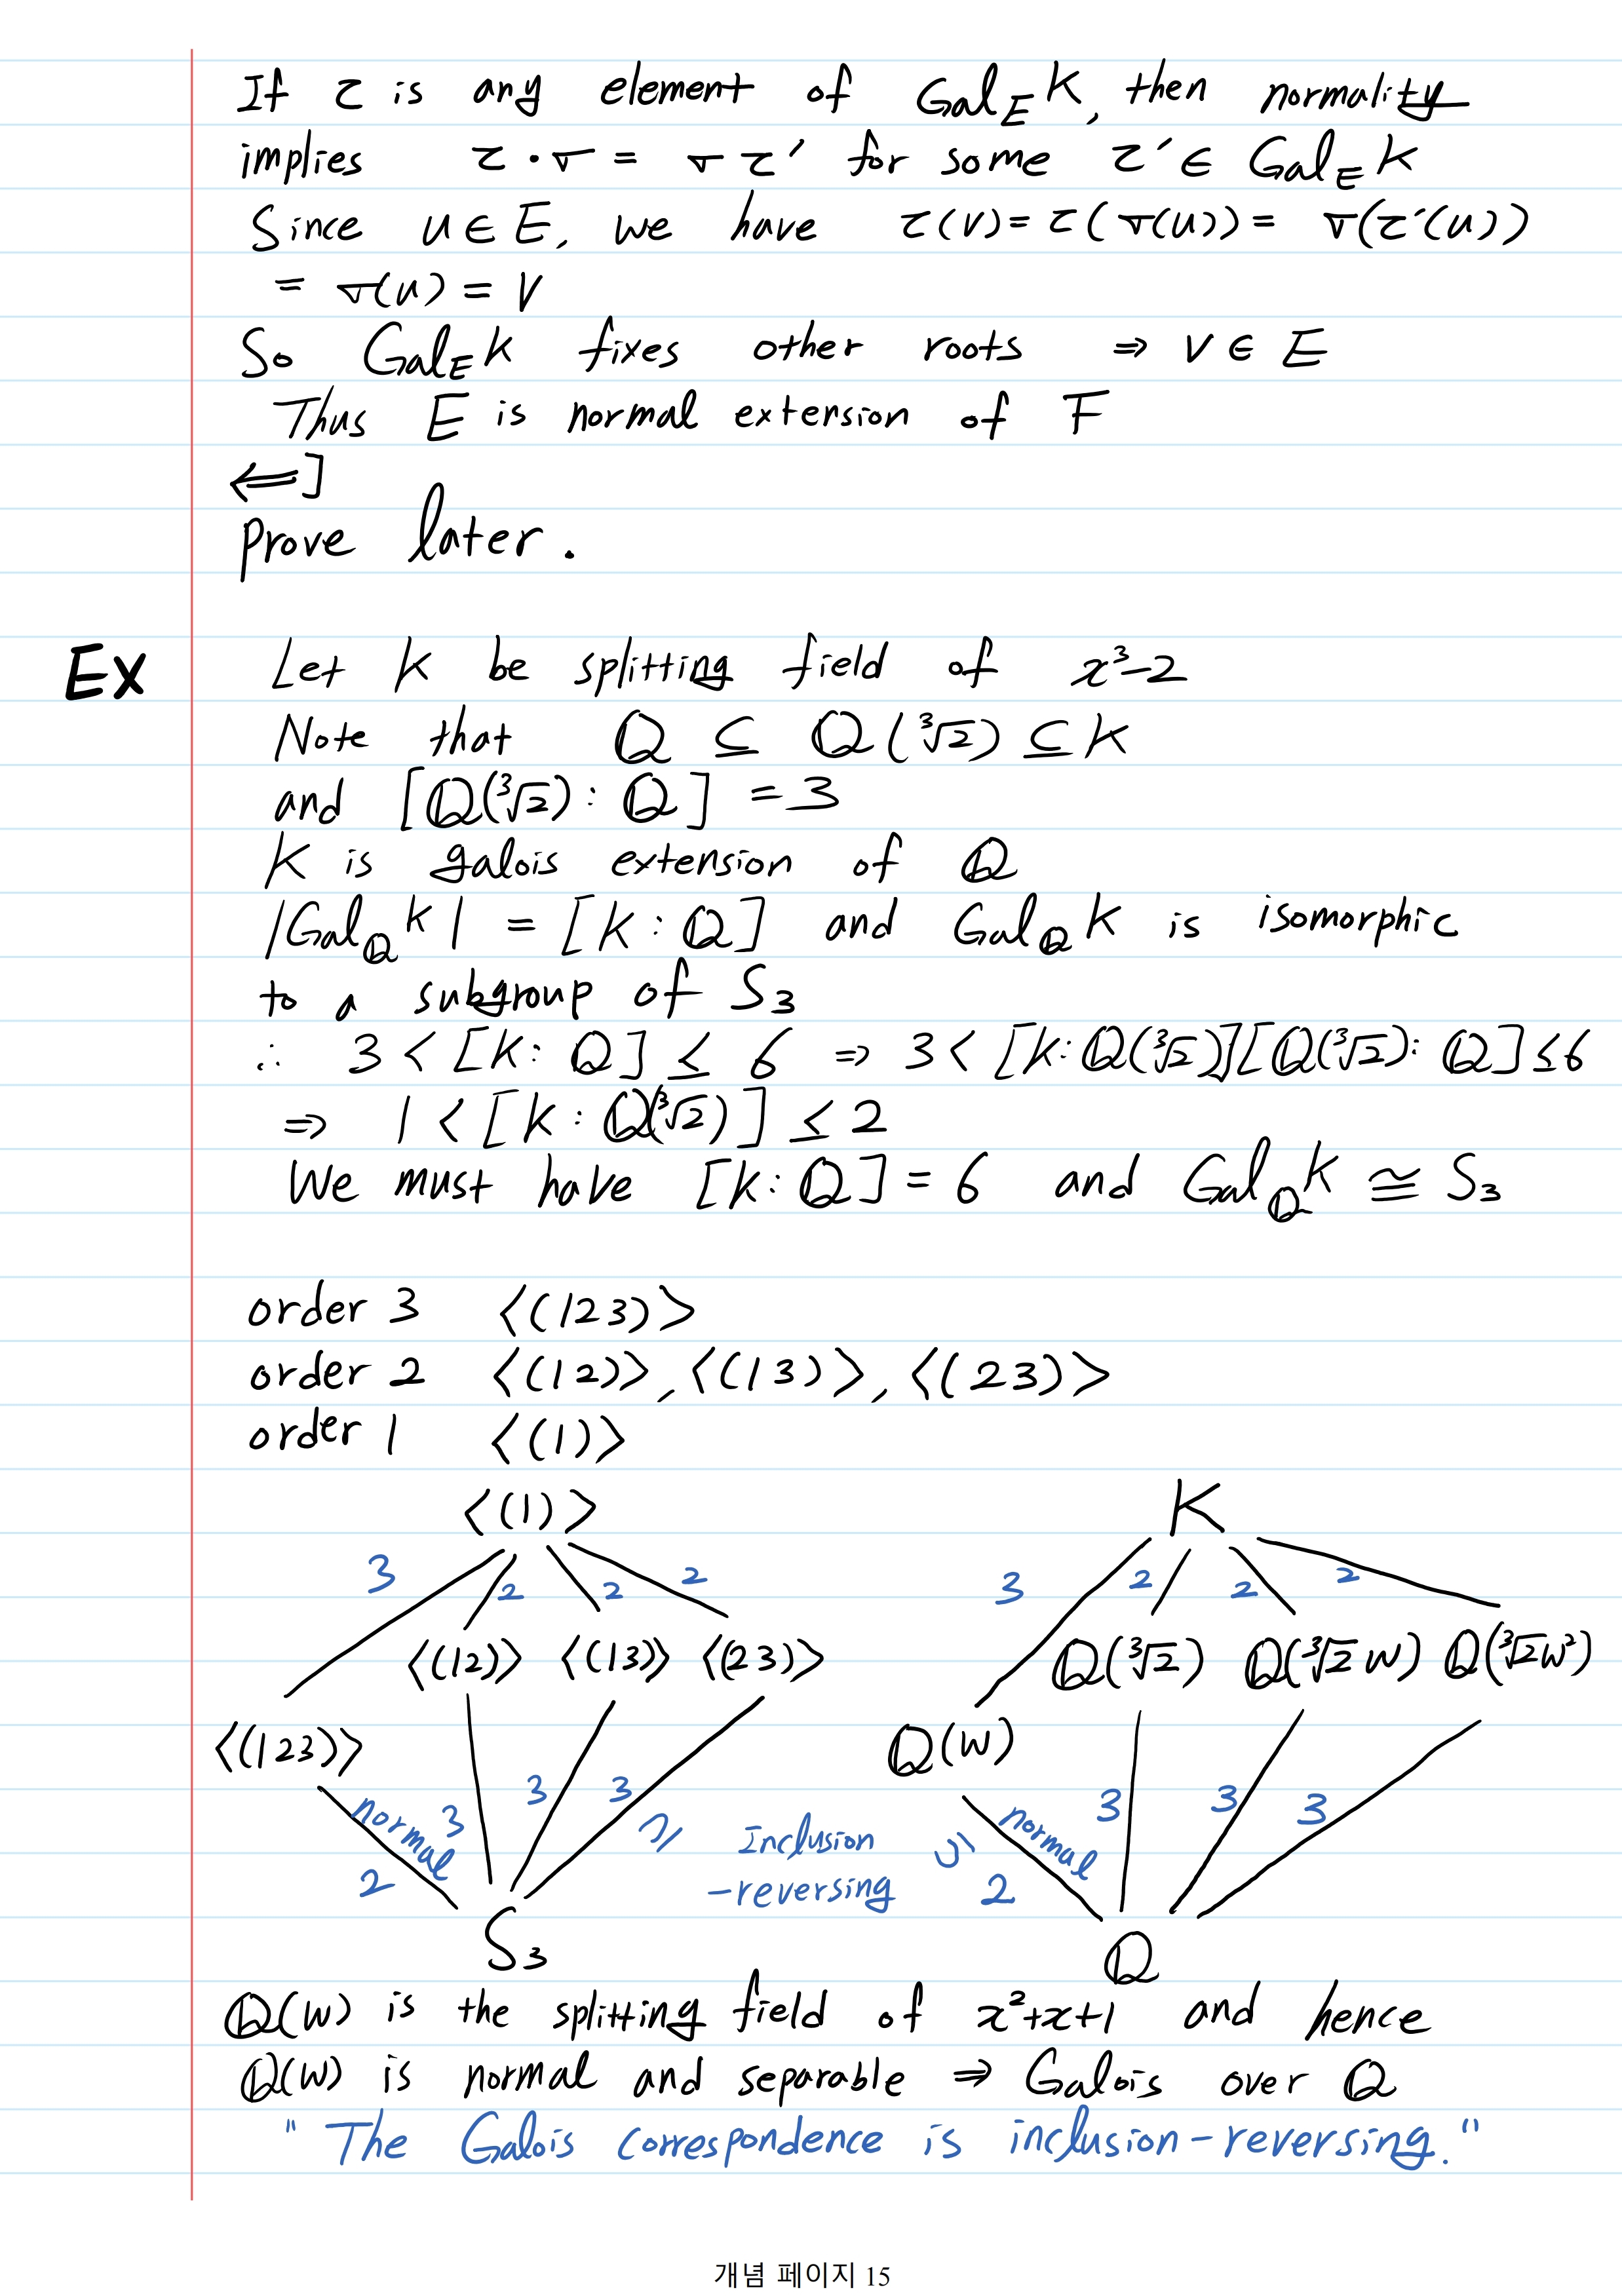 If τ is any element of Gal_E K, then normality
implies τ·σ = σ τ' for some τ' ∈ Gal_E K
Since u ∈ E, we have τ(v) = τ(σ(u)) = σ(τ'(u))
= σ(u) = v
So Gal_E K fixes other roots ⇒ v ∈ E
Thus E is normal extension of F
⇐]
prove later.
Ex Let K be splitting field of x³-2
Note that ℚ ⊆ ℚ(∛2) ⊆ K
and [ℚ(∛2) : ℚ] = 3
K is galois extension of ℚ
|Gal_ℚ K| = [K : ℚ] and Gal_ℚ K is isomorphic
to a subgroup of S₃
∴ 3 < [K : ℚ] ≤ 6 ⇒ 3 < [K : ℚ(∛2)][ℚ(∛2) : ℚ] ≤ 6
⇒ 1 < [K : ℚ(∛2)] ≤ 2
We must have [K : ℚ] = 6 and Gal_ℚ K ≅ S₃
order 3 <(123)>
order 2 <(12)>, <(13)>, <(23)>
order 1 <(1)>
<(1)> K
3 2 2 2 3 2 2 2
<(12)> <(13)> <(23)> ℚ(∛2) ℚ(∛2 w) ℚ(∛2 w²)
<(123)> ℚ(w)
normal 3 3 3 ⊆ Inclusion ⊆ normal 3 3 3
2 -reversing 2
S₃ ℚ
ℚ(w) is the splitting field of x²+x+1 and hence
ℚ(w) is normal and separable ⇒ Galois over ℚ
"The Galois correspondence is inclusion-reversing."
개념 페이지 15